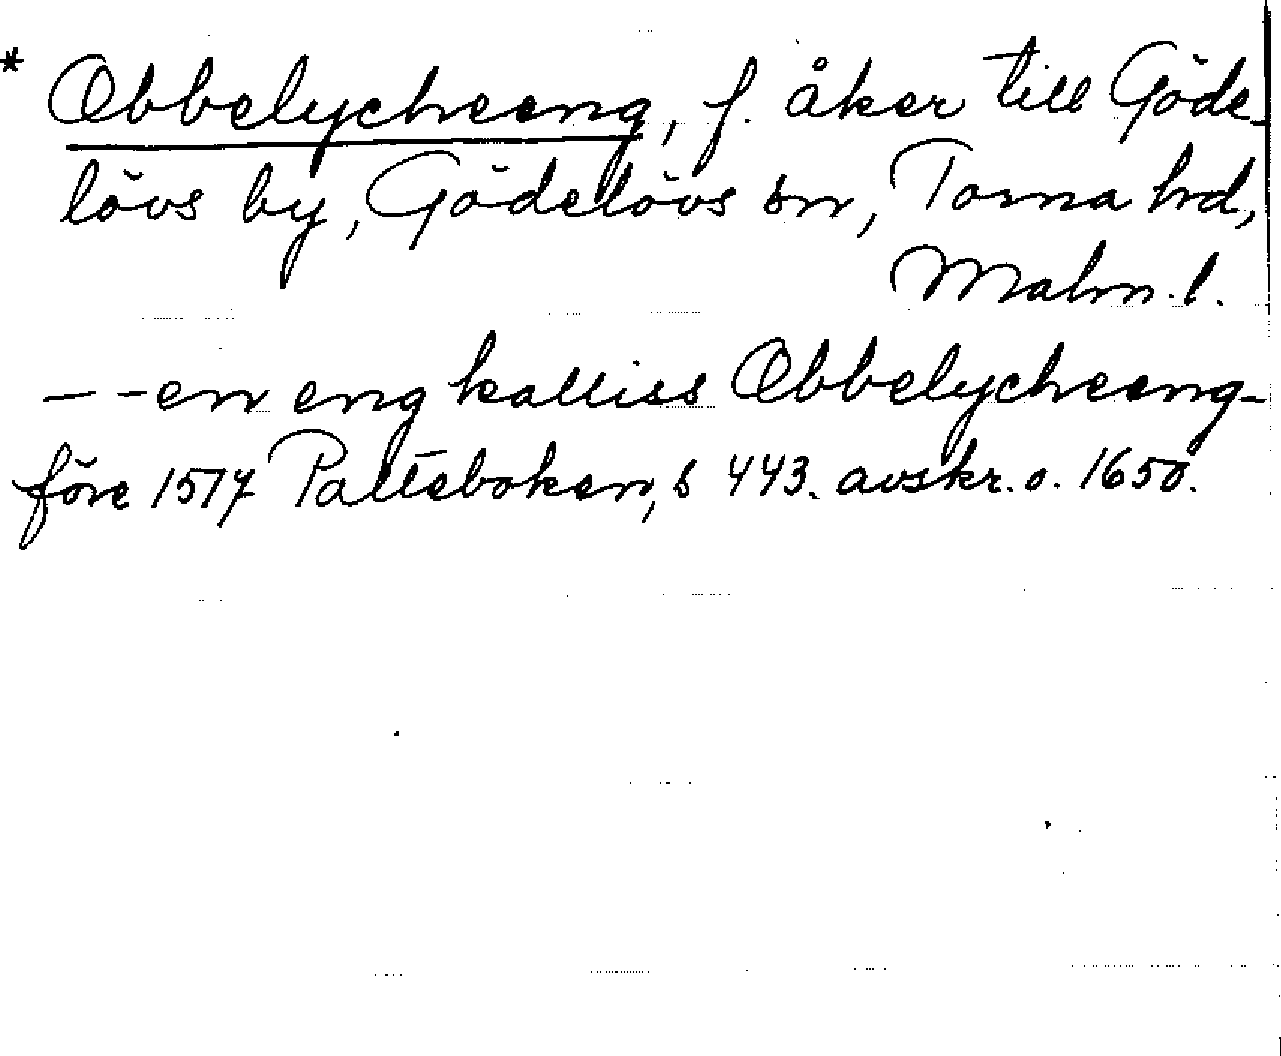 * Obbelycheeng, f. åker till Göde-
lövs by, Gödelövs sn, Torna hd,
Malm. l.
– – en eng kalliss Obbelycheeng –
före 1517 Palteboken, s 443. avskr. o. 1650.